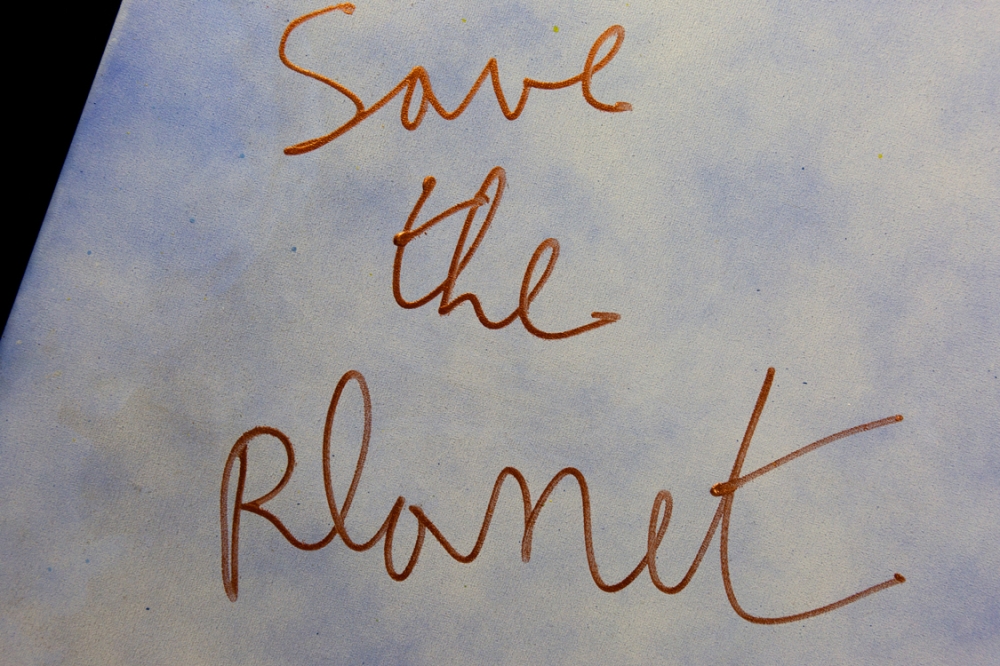 Save
the
Planet